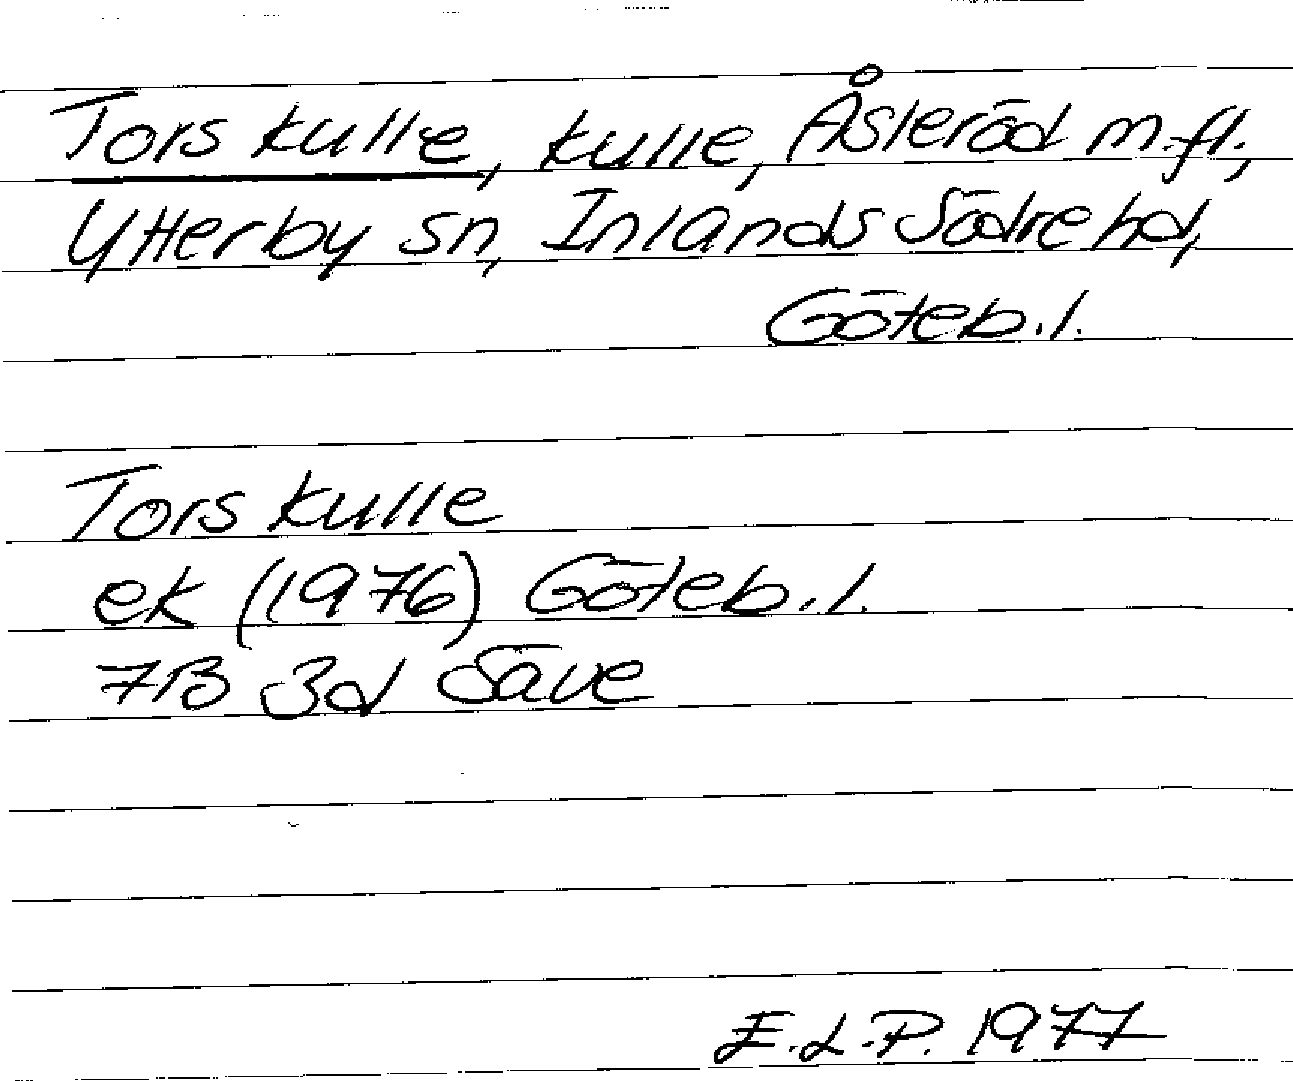 Tors kulle, kulle, Åsleröd m.fl.,
Ytterby sn, Inlands Södre hd,
Göteb.l.
Tors kulle
ek (1976) Göteb.l.
7B 3d Säve
E.L.P. 1977